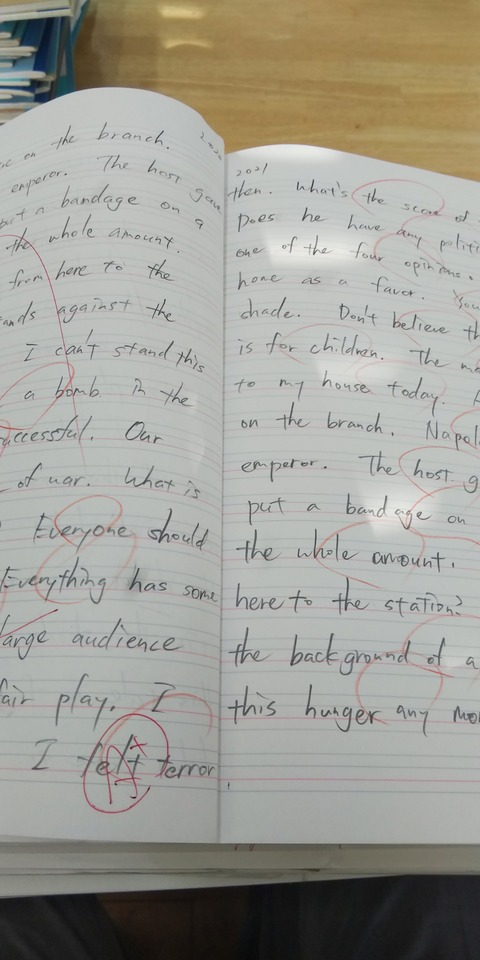 2020
on the branch.
emperor. The host gave
put a bandage on a
the whole amount.
from here to the
against the
I can't stand this
a bomb in the
successful. Our
of war. What is
Everyone should
Everything has some
large audience
fair play. I
I felt terror
2021
then. What's the score of
Does he have any politi
one of the four opinions.
home as a favor. You
shade. Don't believe th
is for children. The ma
to my house today. A
on the branch. Napol
emperor. The host g
put a bandage on
the whole amount.
here to the station?
the background of a
this hunger any mor